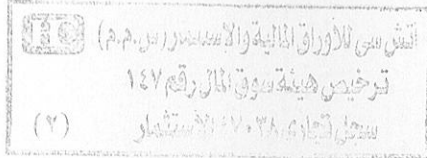 اتش سي للأوراق المالية والاستثمار (س.م.م)
ترخيص هيئة سوق المال رقم ١٤٧
سجل تجاري الاستثمار (٢)